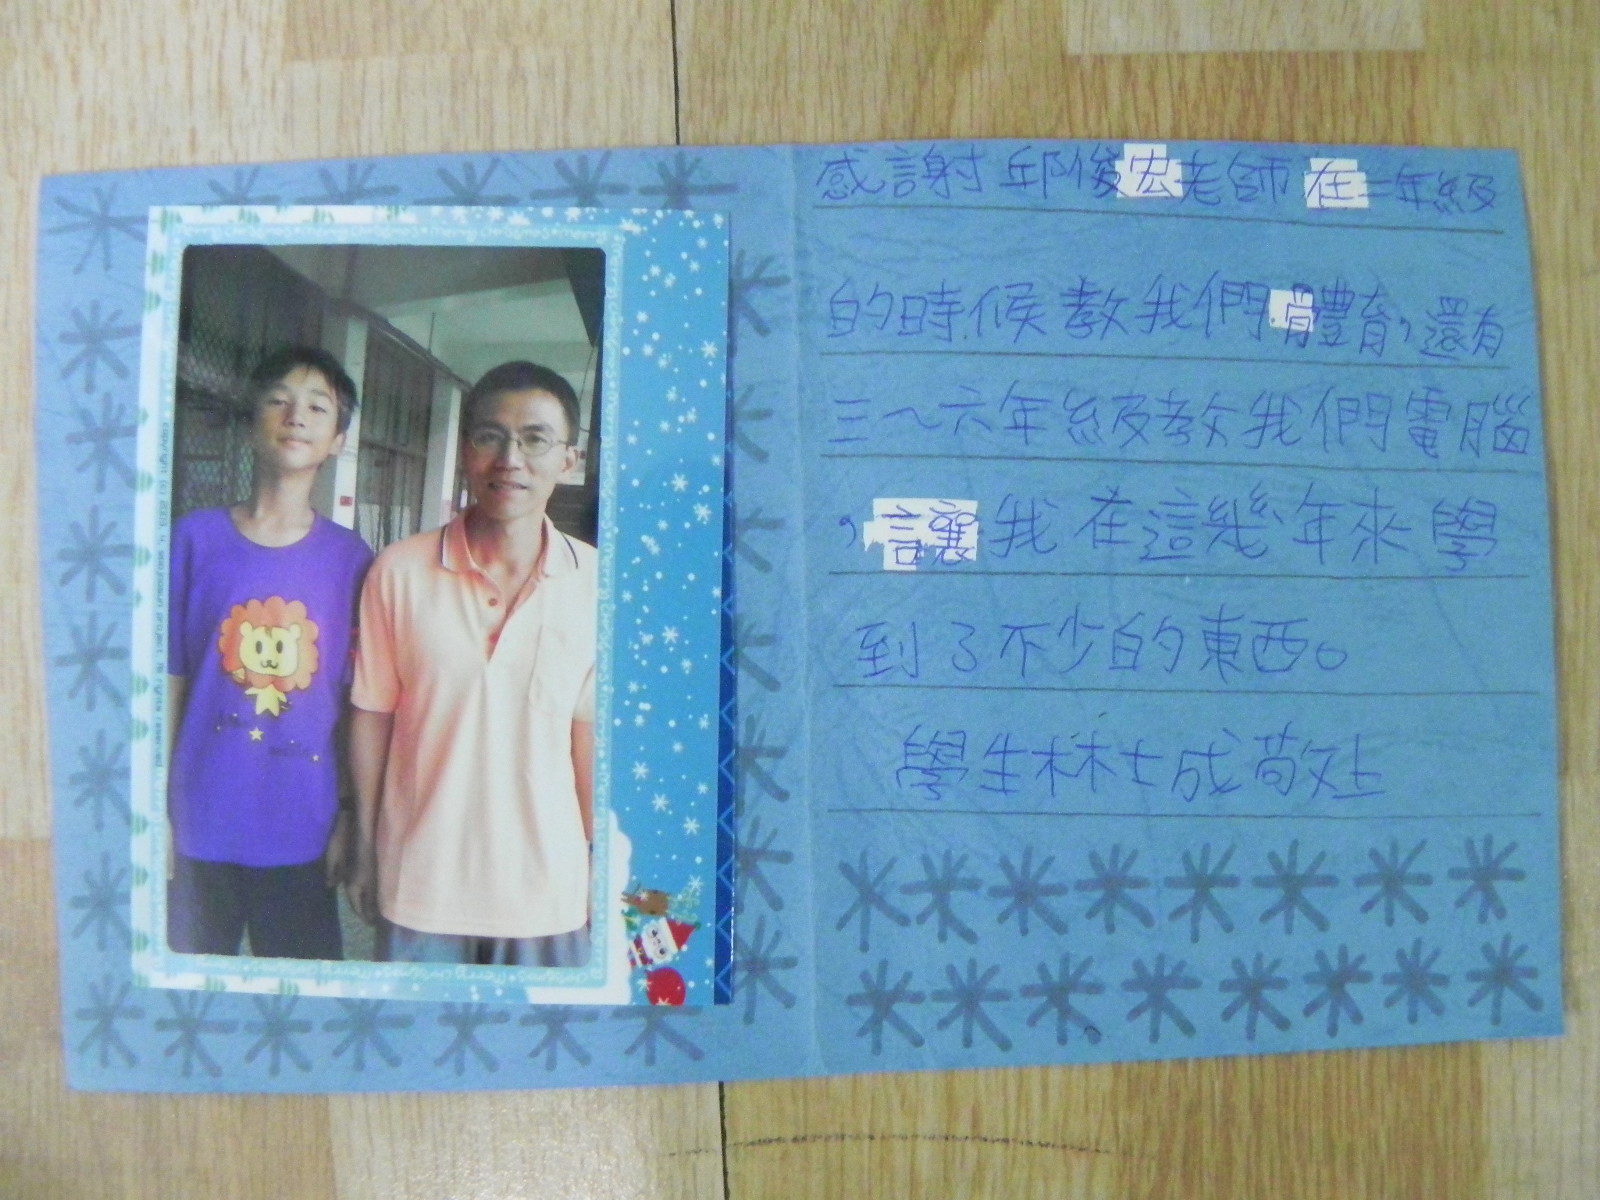 感謝邱俊宏老師在一年級
的時候教我們體育，還有
三～六年級教我們電腦
，讓我在這幾年來學
到了不少的東西。
學生林士成敬上